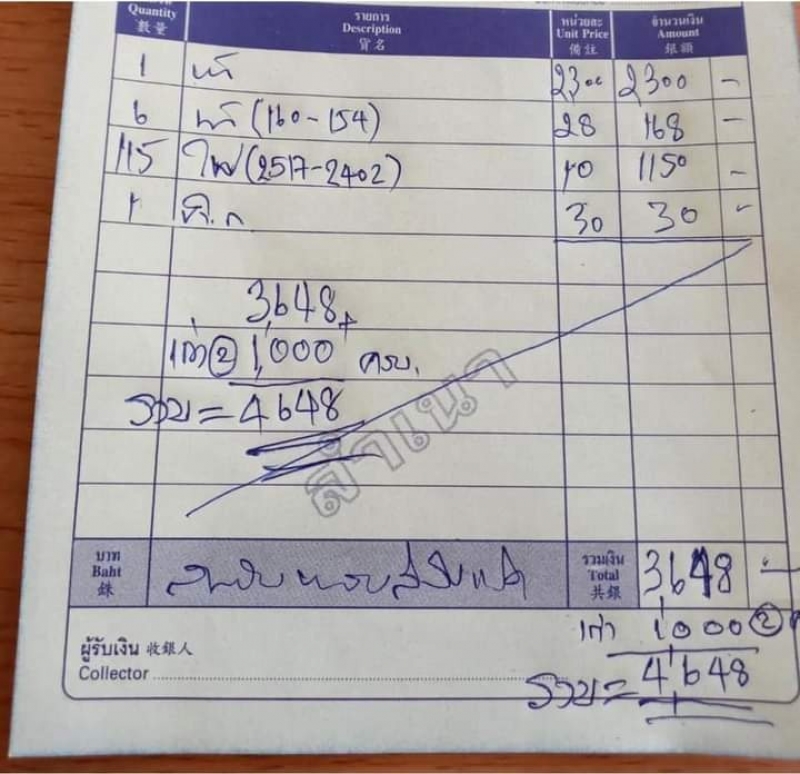 Quantity รายการ หน่วยละ จำนวนเงิน
數量 Description Unit Price Amount
貨名 備註 銀額
1 2300 2300 -
6 (160-154) 28 168 -
115 ไฟ (2517-2402) 10 1150 -
1 30 30 -
3648 +
เก่า ② 1,000 ครบ.
รวม = 4648
สำเนา
บาท Baht 銖 รวมเงิน Total 共銀 3648 -
เก่า 1000 ②
ผู้รับเงิน 收銀人
Collector
รวม = 4648